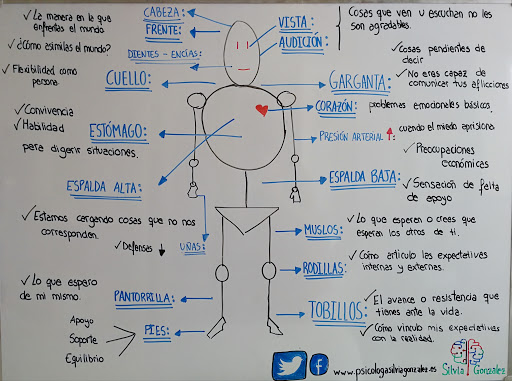 ✓ La manera en la que
enfrentas el mundo
✓ ¿Cómo asimilas el mundo?
CABEZA:
FRENTE:
DIENTES - ENCÍAS:
VISTA:
AUDICIÓN:
Cosas que ven u escuchan no les
son agradables.
✓ Flexibilidad como
persona.
CUELLO:
GARGANTA:
✓ Cosas pendientes de
decir
✓ No eres capaz de
comunicar tus aflicciones
✓ Convivencia
✓ Habilidad
para digerir situaciones.
ESTÓMAGO:
CORAZÓN: problemas emocionales básicos.
PRESIÓN ARTERIAL ↑: cuando el miedo aprisiona
✓ Preocupaciones
económicas
ESPALDA ALTA:
✓ Estamos cargando cosas que no nos
corresponden.
ESPALDA BAJA:
✓ Sensación de falta
de apoyo
✓ Defensas ↓ UÑAS:
MUSLOS:
✓ Lo que esperan o crees que
esperan los otros de ti.
RODILLAS:
✓ Cómo articulo las expectativas
internas y externas.
✓ Lo que espero
de mi mismo.
PANTORRILLA:
TOBILLOS:
✓ El avance o resistencia que
tienes ante la vida.
✓ Cómo vinculo mis expectativas
con la realidad.
Apoyo
Soporte
Equilibrio
PIES:
f
www.psicologasilviagonzalez.es
Silvia González